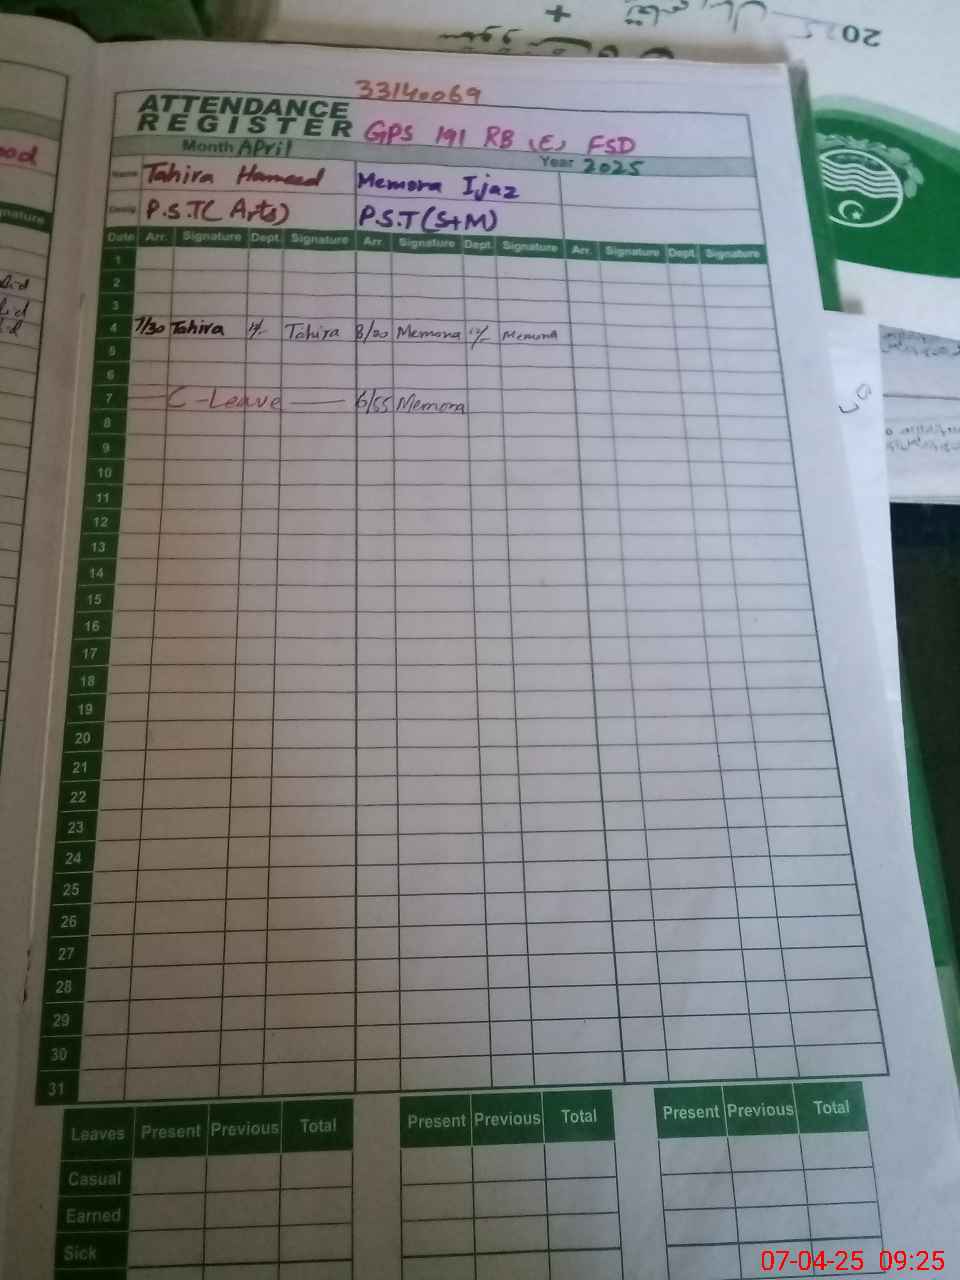 2025
+
33140069
ATTENDANCE
REGISTER GPS 191 RB (E) FSD
Month April Year 2025
Name Tahira Hameed Memona Ijaz
P.S.T( Arts) P.S.T (S+M)
Date Arr. Signature Dept. Signature Arr. Signature Dept. Signature Arr. Signature Dept. Signature
1
2
3
4 7/30 Tahira Tahira 8/00 Memona 12/- Memona
5
6
7 C-Leave 6/55 Memona
8
9
10
11
12
13
14
15
16
17
18
19
20
21
22
23
24
25
26
27
28
29
30
31
Leaves Present Previous Total Present Previous Total Present Previous Total
Casual
Earned
Sick
07-04-25 09:25